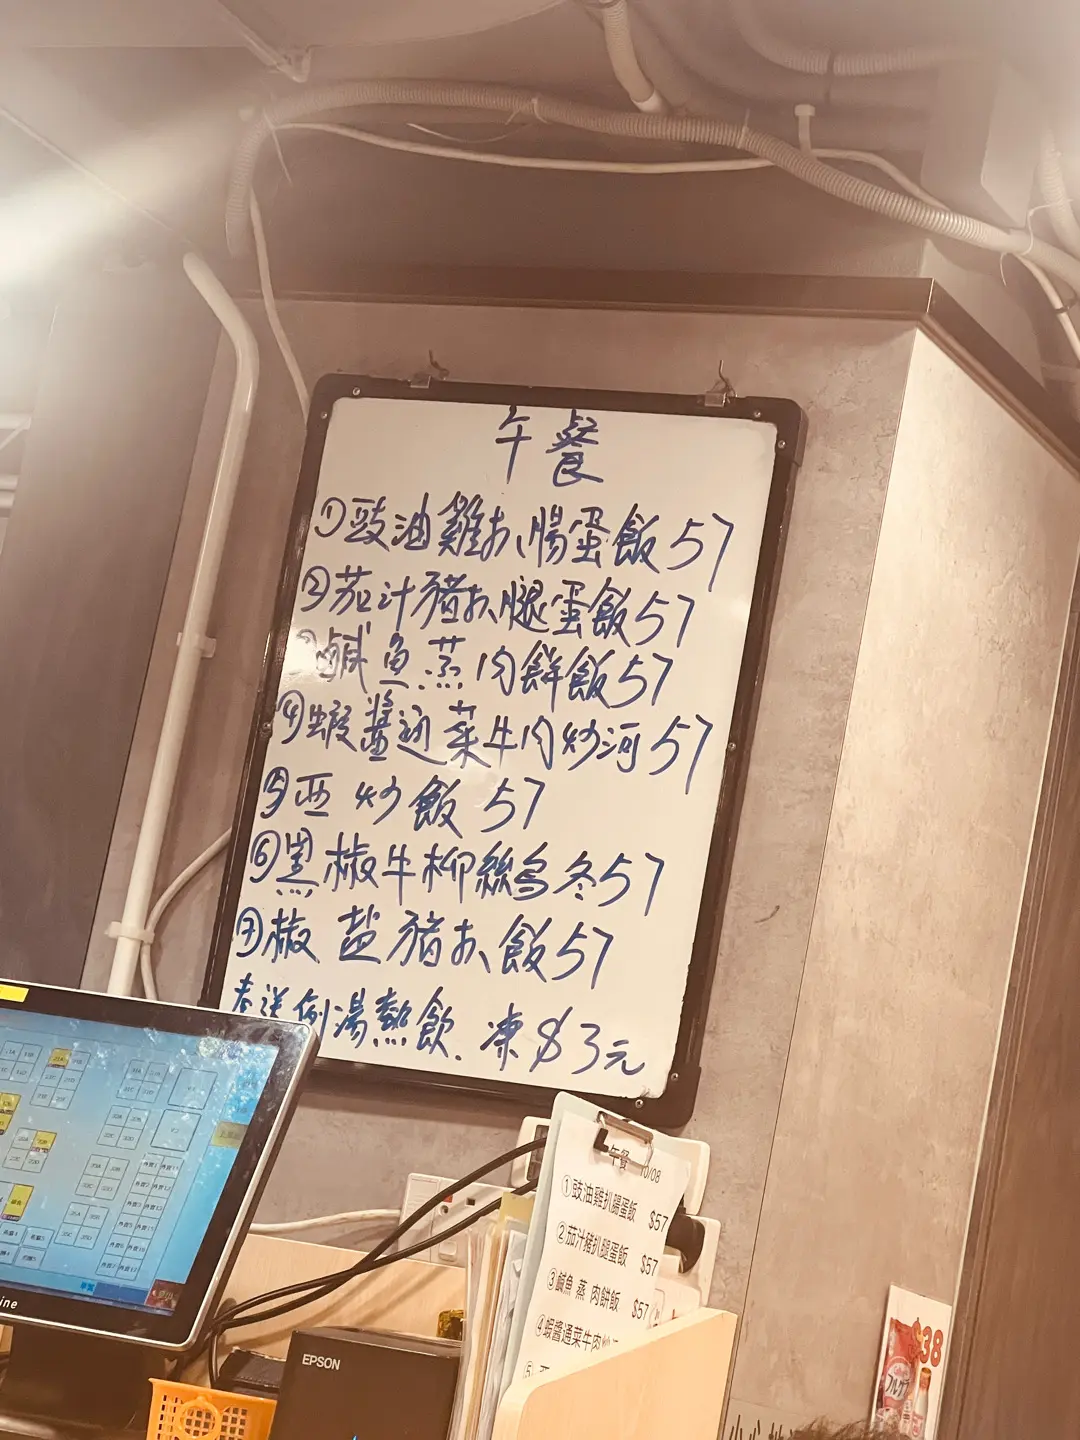 午餐
①豉油雞扒腸蛋飯 57
②茄汁豬扒腿蛋飯 57
③鹹魚蒸肉餅飯 57
④蝦醬通菜牛肉炒河 57
⑤西炒飯 57
⑥黑椒牛柳絲烏冬 57
⑦椒盐豬扒飯 57
送例湯熱飲. 凍 $3元
午餐 10/08
①豉油雞扒腸蛋飯 $57
②茄汁豬扒腿蛋飯 $57
③鹹魚 蒸 肉餅飯 $57
④蝦醬通菜牛肉
⑤
EPSON
$38
フルグラ
小心地